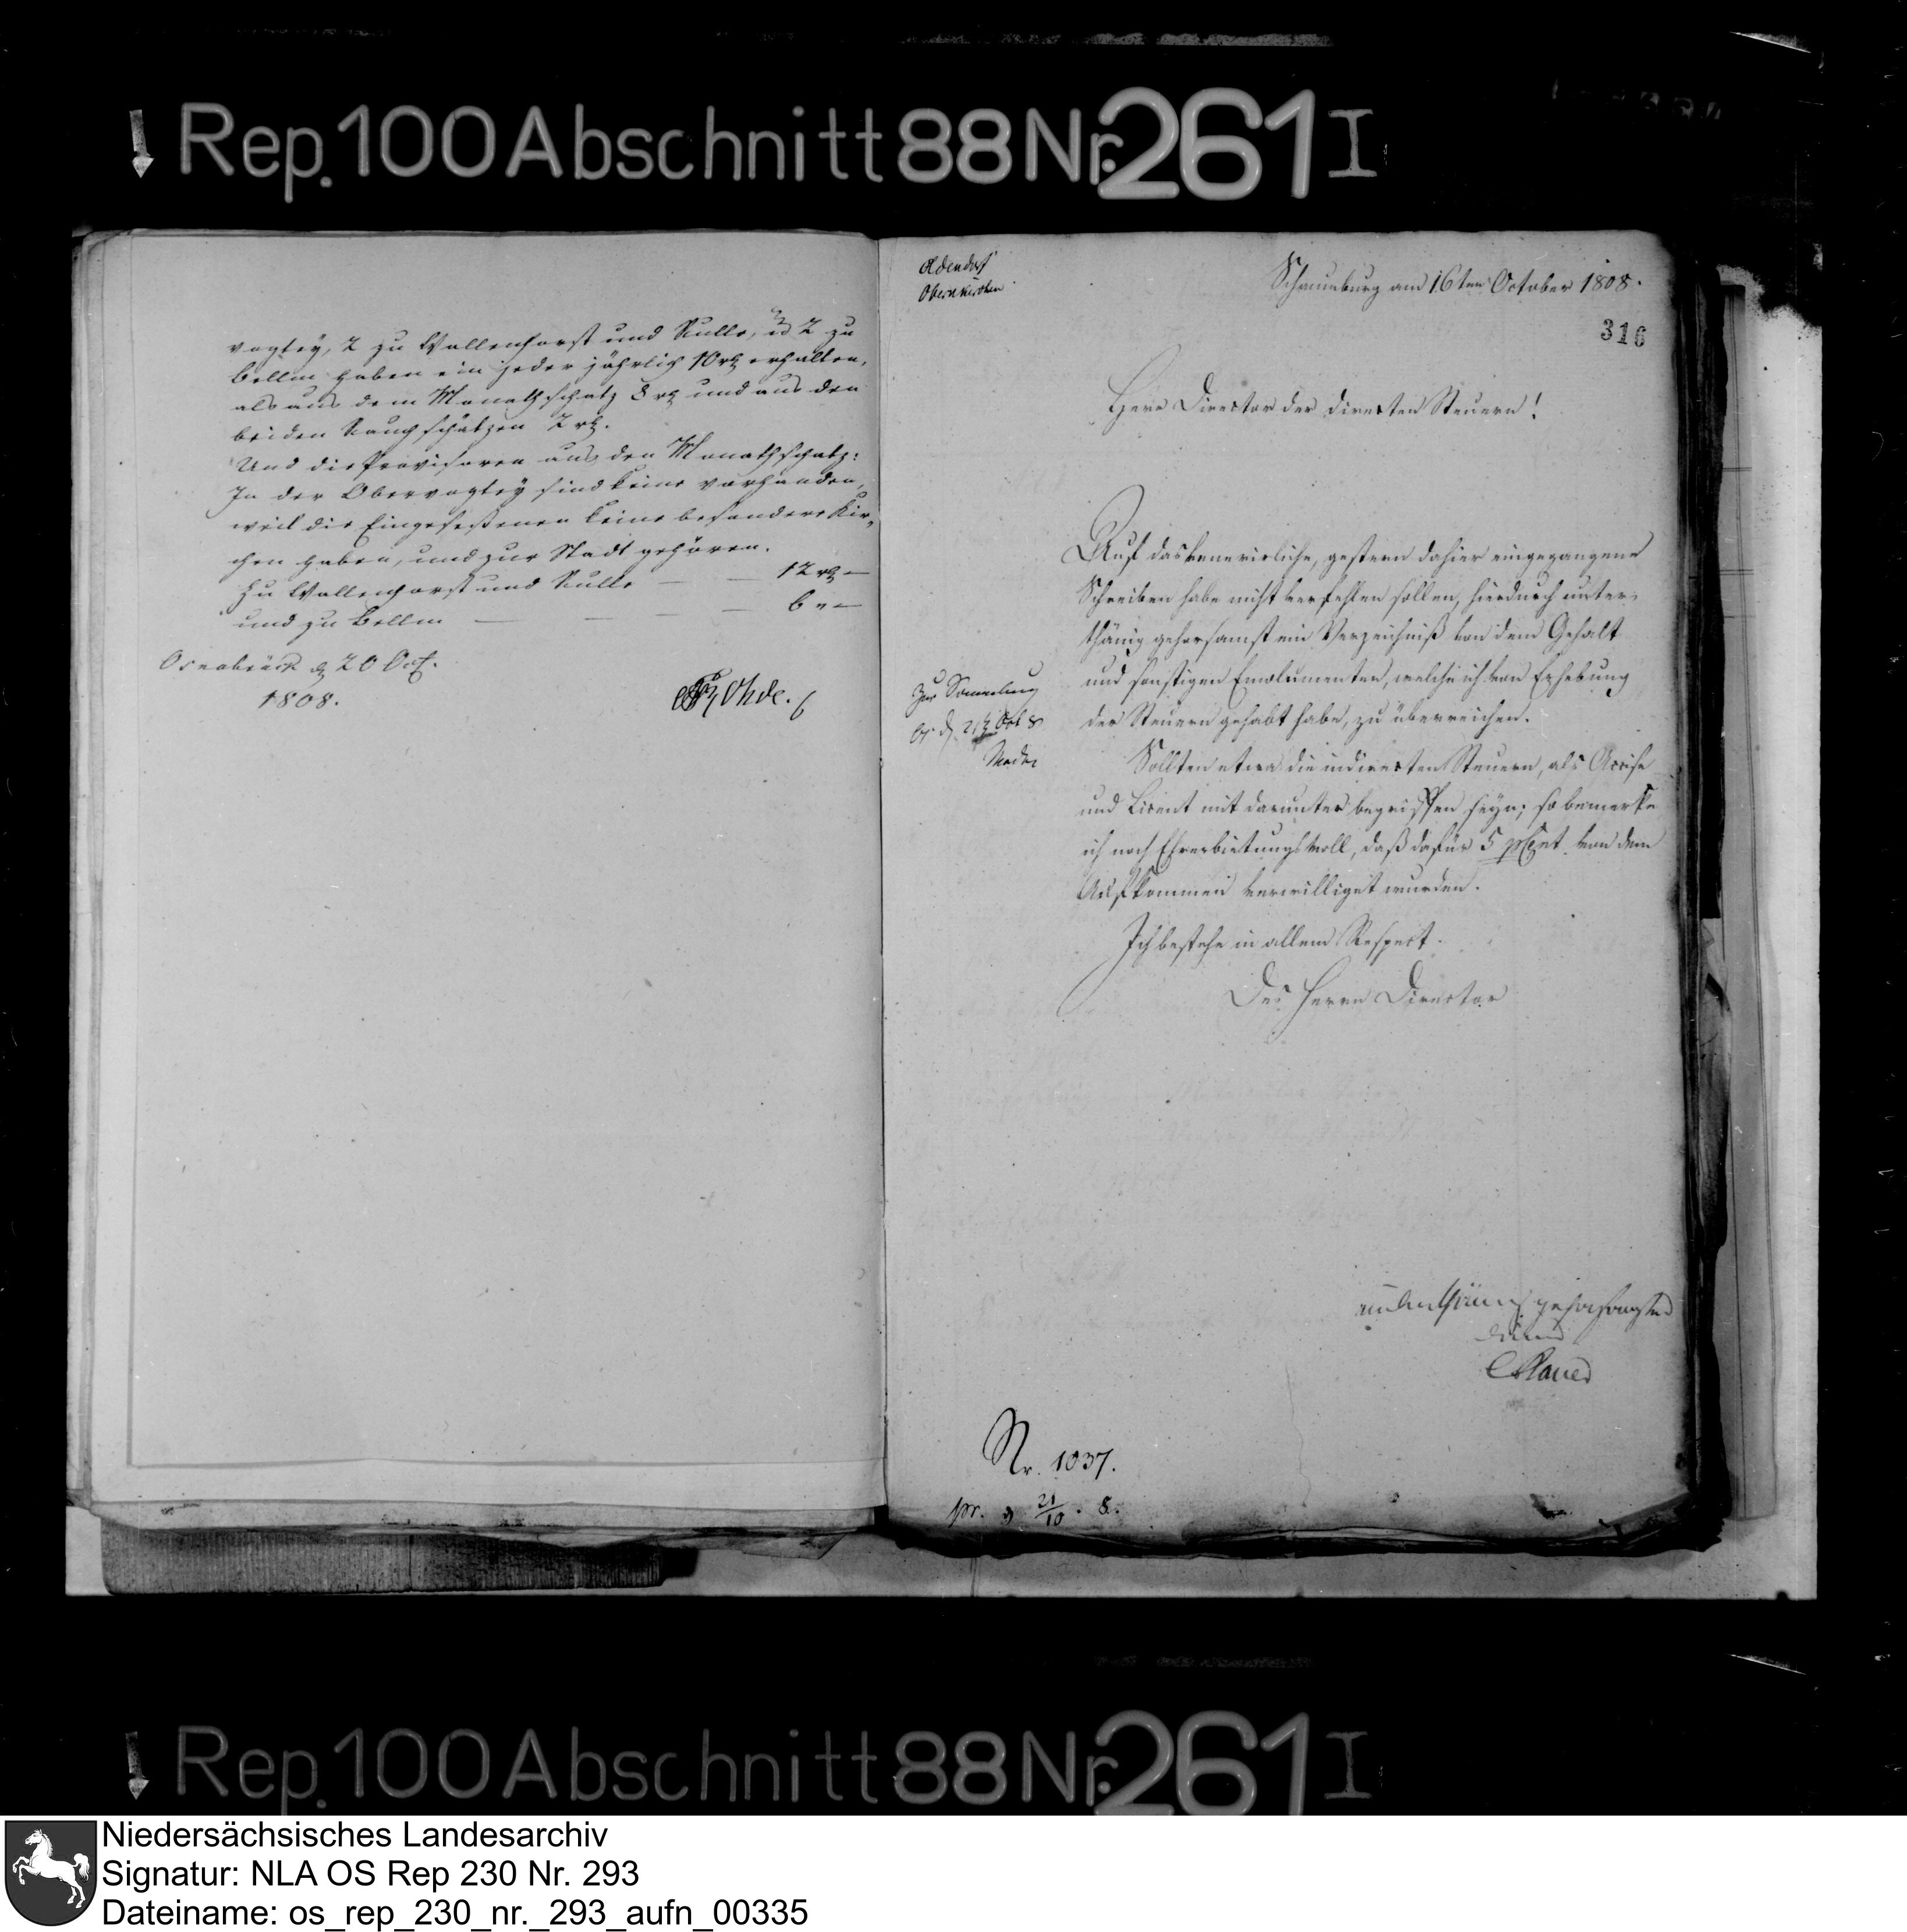 Rep. 100 Abschnitt 88 Nr. 261 I
vogtey, 2 zu Wallenhorst und Rulle, u 2 zu
Bellm haben ein jeder jährlich 10 rh erhalten,
als aus dem Monathschatz 8 rh und aus den
beiden Rauchschätzen 2 rh.
Und die Provisoren aus den Monathschatz:
In der Obervogtey sind keine vorhanden,
weil die Eingeseßenen keine besondere Kir„
chen haben, und zur Stadt gehören.
Zu Wallenhorst und Rulle — — 12 rh —
und zu Bellm — — — 6 " —
Osnabrück d 20 Oct.
1808.
Rohde.
Oldendorf
Obernkirchen
Schaumburg am 16ten October 1808.
316
Herr Director der directen Steuern!
Auf das venerirliche, gestern dahier eingegangene
Schreiben habe nicht verfehlen sollen, hierdurch unter-
thänig gehorsamst ein Verzeichniß von dem Gehalt
und sonstigen Emolumenten, welche ich von Erhebung
der Steuern gehabt habe, zu überreichen.
Zur Sammlung
Os d 21 Oct 8
Sollten etwa die indirecten Steuern, als Accise
und Licent mit darunter begriffen seyn; so bemerke
ich noch Ehrerbietungsvoll, daß dafür 5 pCent von dem
Aufkommen verwilliget wurden.
Ich bestehe in allem Respect.
Des Herrn Director
unterthänig gehorsamster
Diener
Nr. 1037.
pr. d 21/10. 8.
Rep. 100 Abschnitt 88 Nr. 261 I
Niedersächsisches Landesarchiv
Signatur: NLA OS Rep 230 Nr. 293
Dateiname: os_rep_230_nr._293_aufn_00335